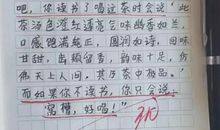 吧，你读书了喝这茶时会说"此
茶汤色澄红通亮气味幽香如兰，
口感饱满纯正，圆润如诗，回味
甘甜，齿颊留香，韵味十足，仿
佛天上人间，真乃茶中极品。"
而如果你不读书，你只会说
"窝槽，好喝！"